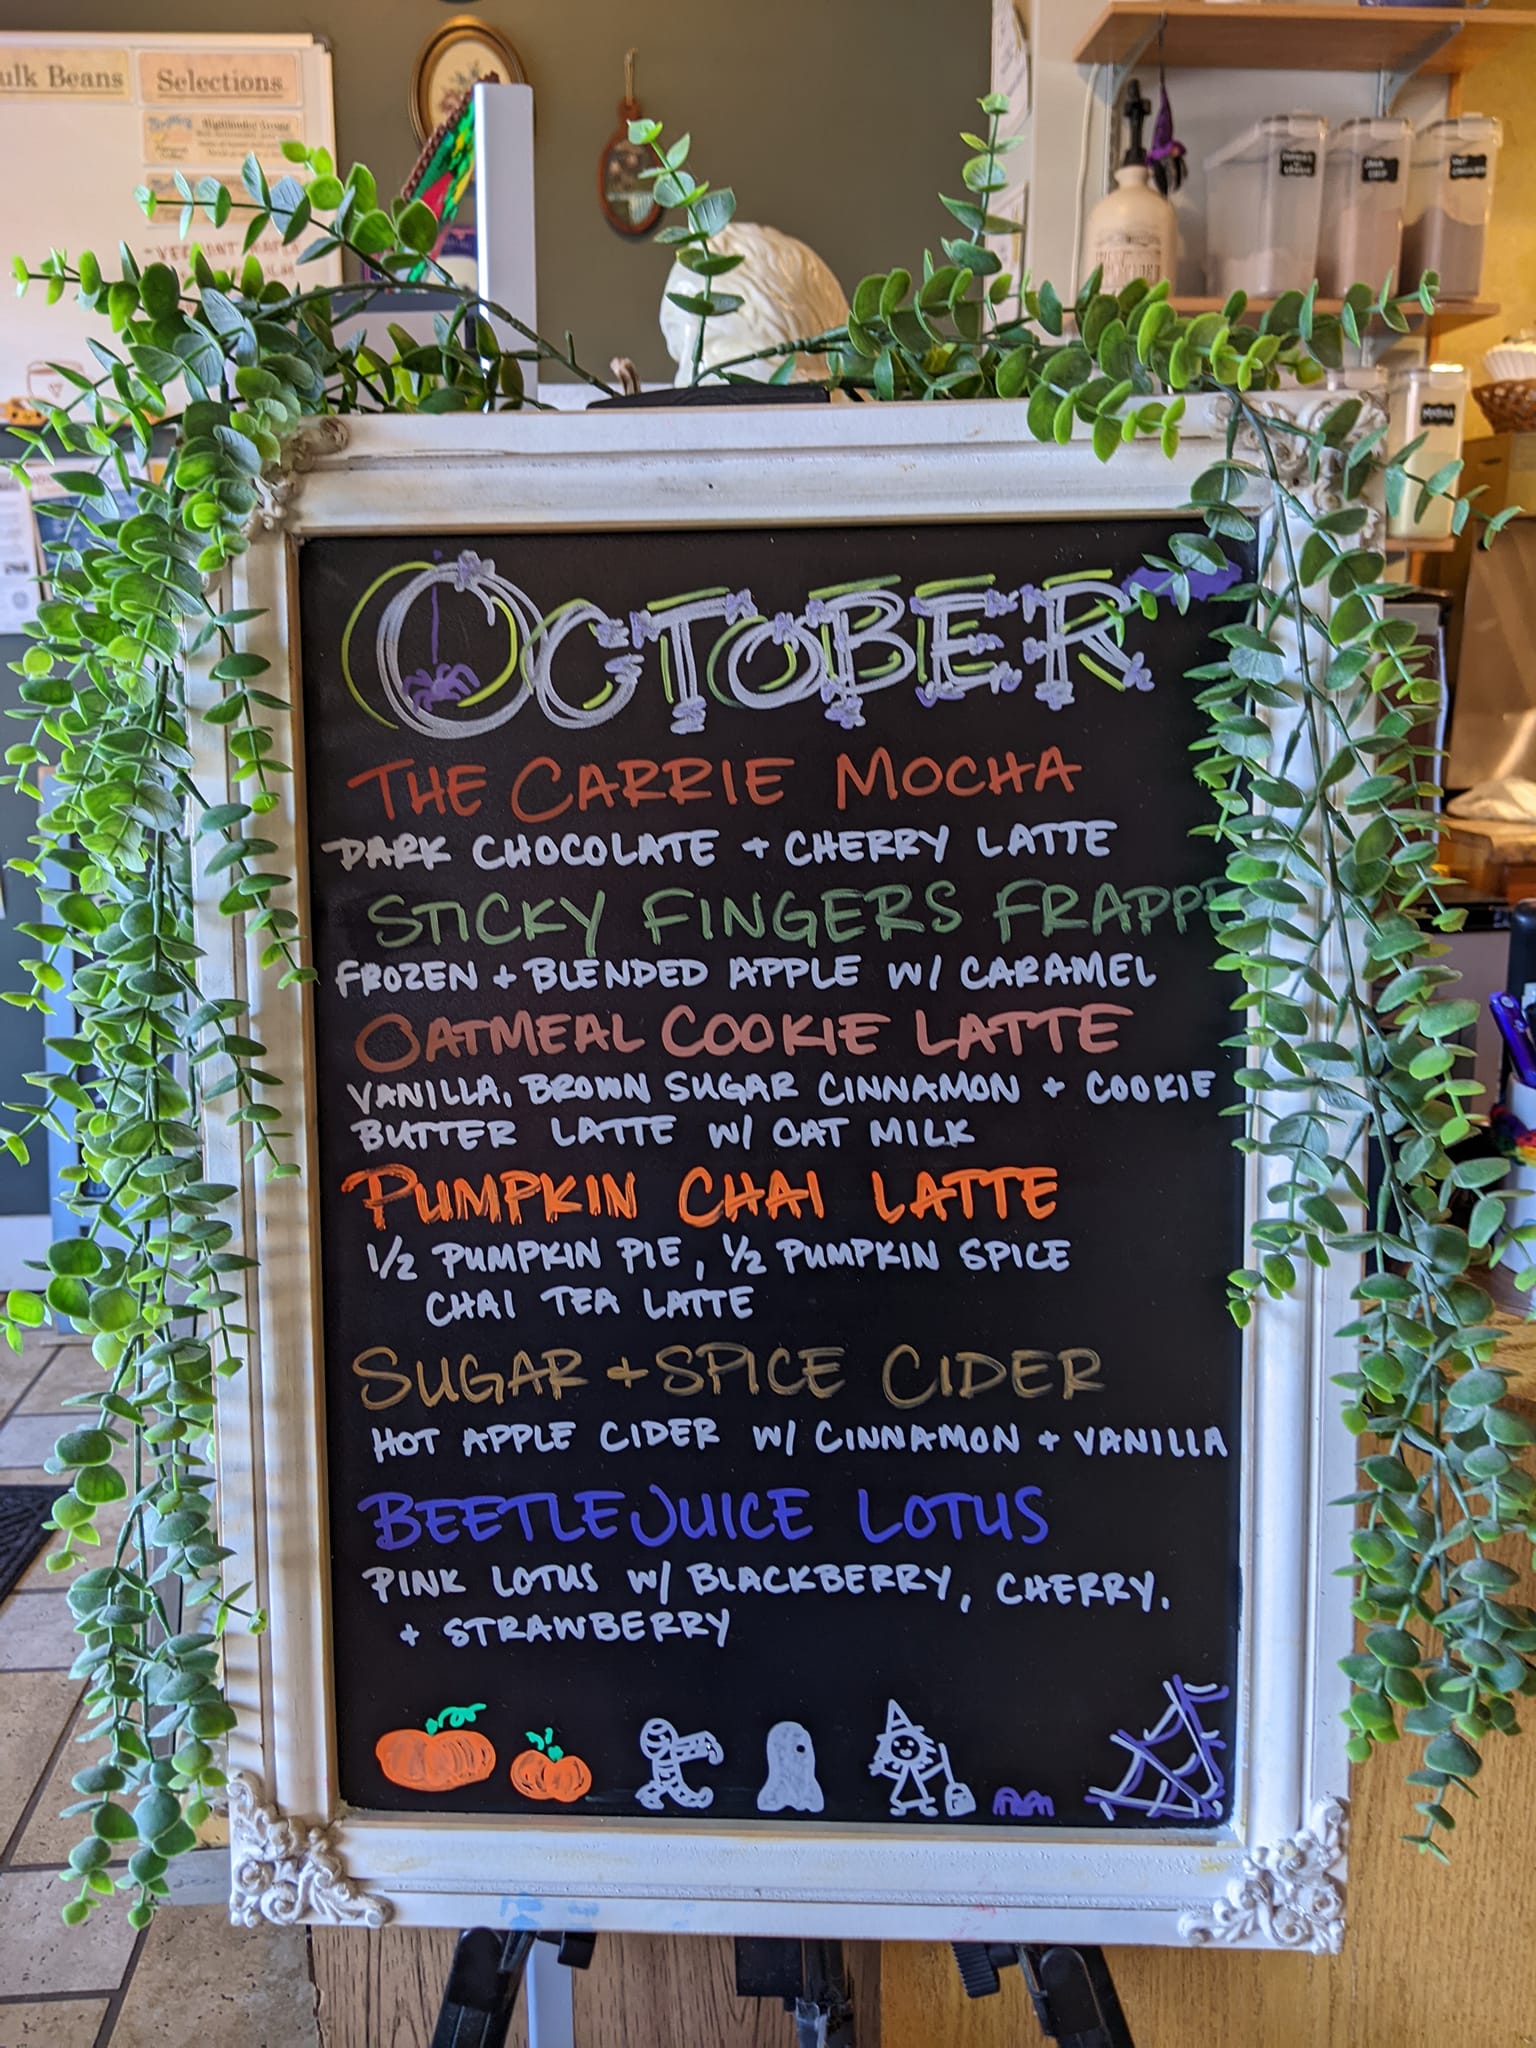 ulk Beans
Selections
OCTOBER
THE CARRIE MOCHA
DARK CHOCOLATE + CHERRY LATTE
STICKY FINGERS FRAPPE
FROZEN + BLENDED APPLE W/ CARAMEL
OATMEAL COOKIE LATTE
VANILLA, BROWN SUGAR CINNAMON + COOKIE
BUTTER LATTE W/ OAT MILK
PUMPKIN CHAI LATTE
1/2 PUMPKIN PIE, 1/2 PUMPKIN SPICE
CHAI TEA LATTE
SUGAR + SPICE CIDER
HOT APPLE CIDER W/ CINNAMON + VANILLA
BEETLEJUICE LOTUS
PINK LOTUS W/ BLACKBERRY, CHERRY,
+ STRAWBERRY